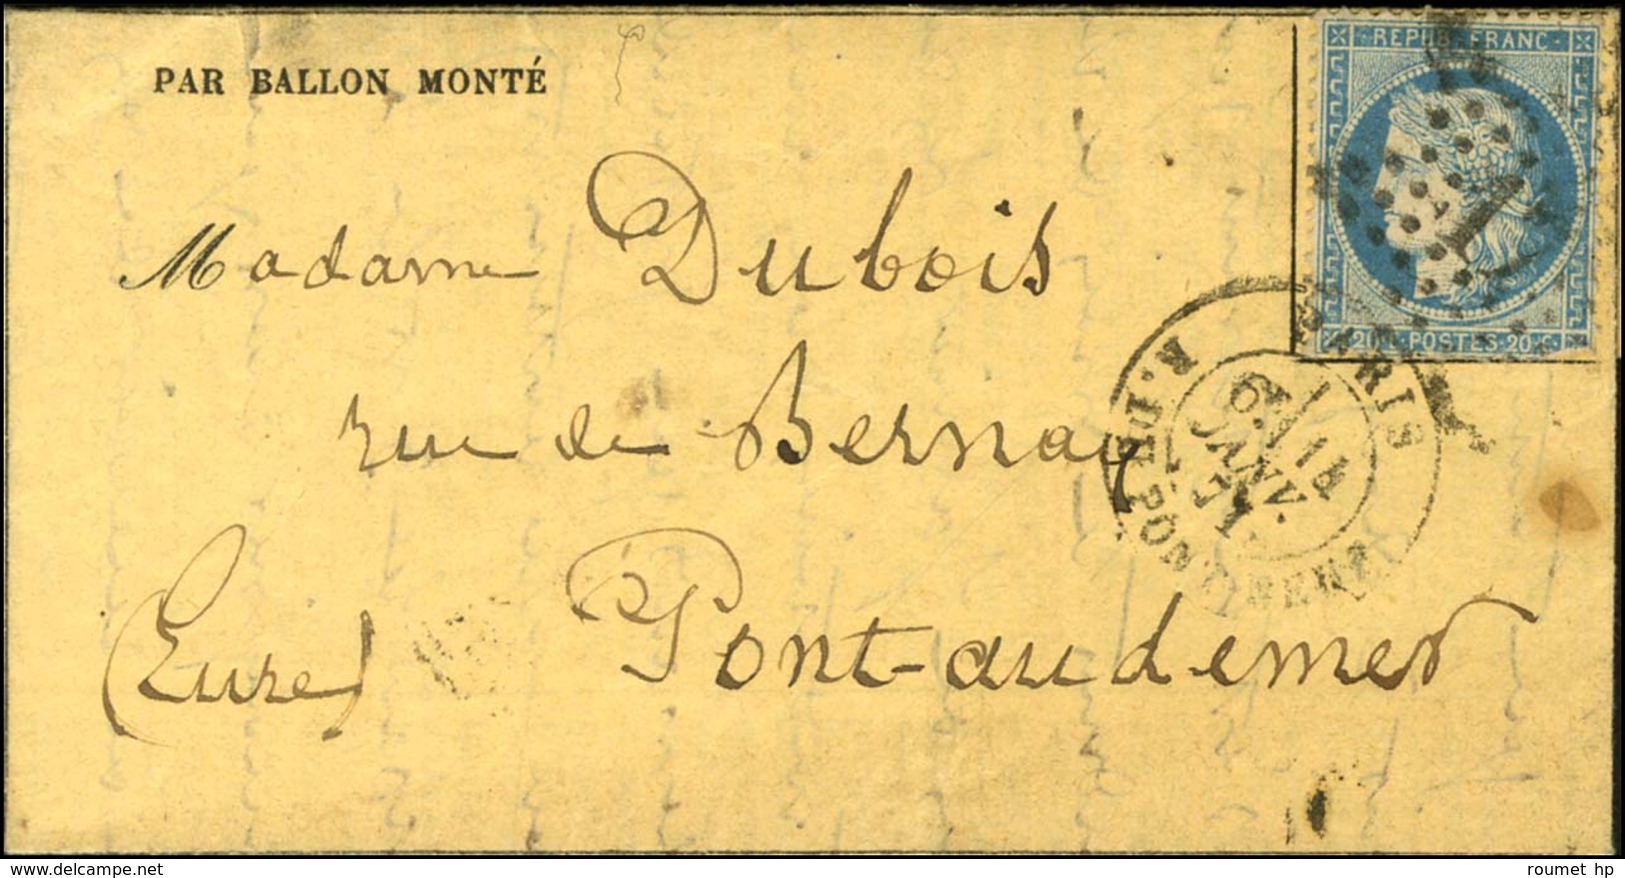 PAR BALLON MONTÉ
REPUB. FRANC
20 C. POSTES 20 C.
Madame Dubois
rue de Bernay
(Eure) Pont-audemer
PARIS
6 JANV. 71
delcampe.net
roumet hp